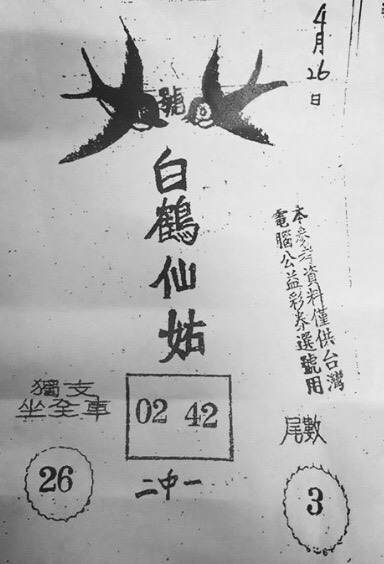 4月26日
號
白鶴仙姑
本參考資料僅供台灣
電腦公益彩券選號用
獨支
坐全車
02 42
尾數
26
二中一
3